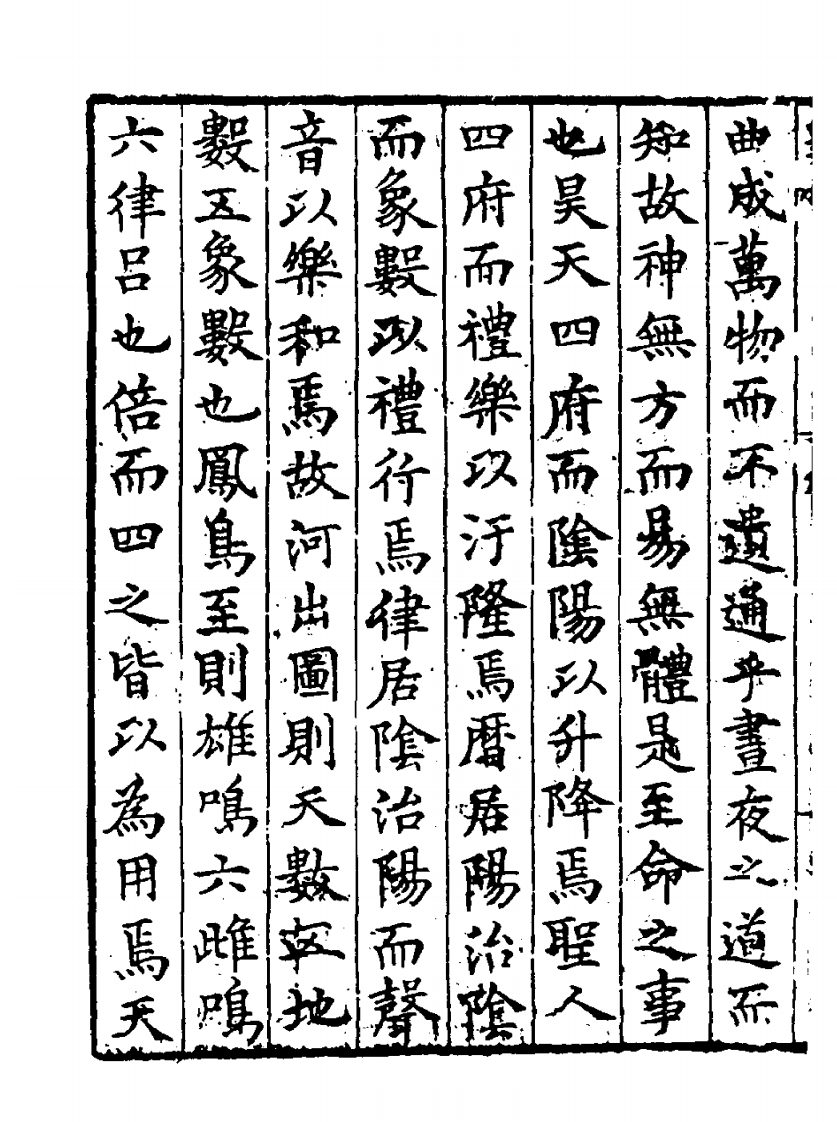 曲成萬物而不遺通乎晝夜之道而
知故神無方而易無體是至命之事
也昊天四府而陰陽以升降焉聖人
四府而禮樂以汙隆焉曆居陽治陰
而象數以禮行焉律居陰治陽而聲
音以樂和焉故河出圖則天數五地
數五象數也鳳鳥至則雄鳴六雌鳴
六律呂也倍而四之皆以為用焉天